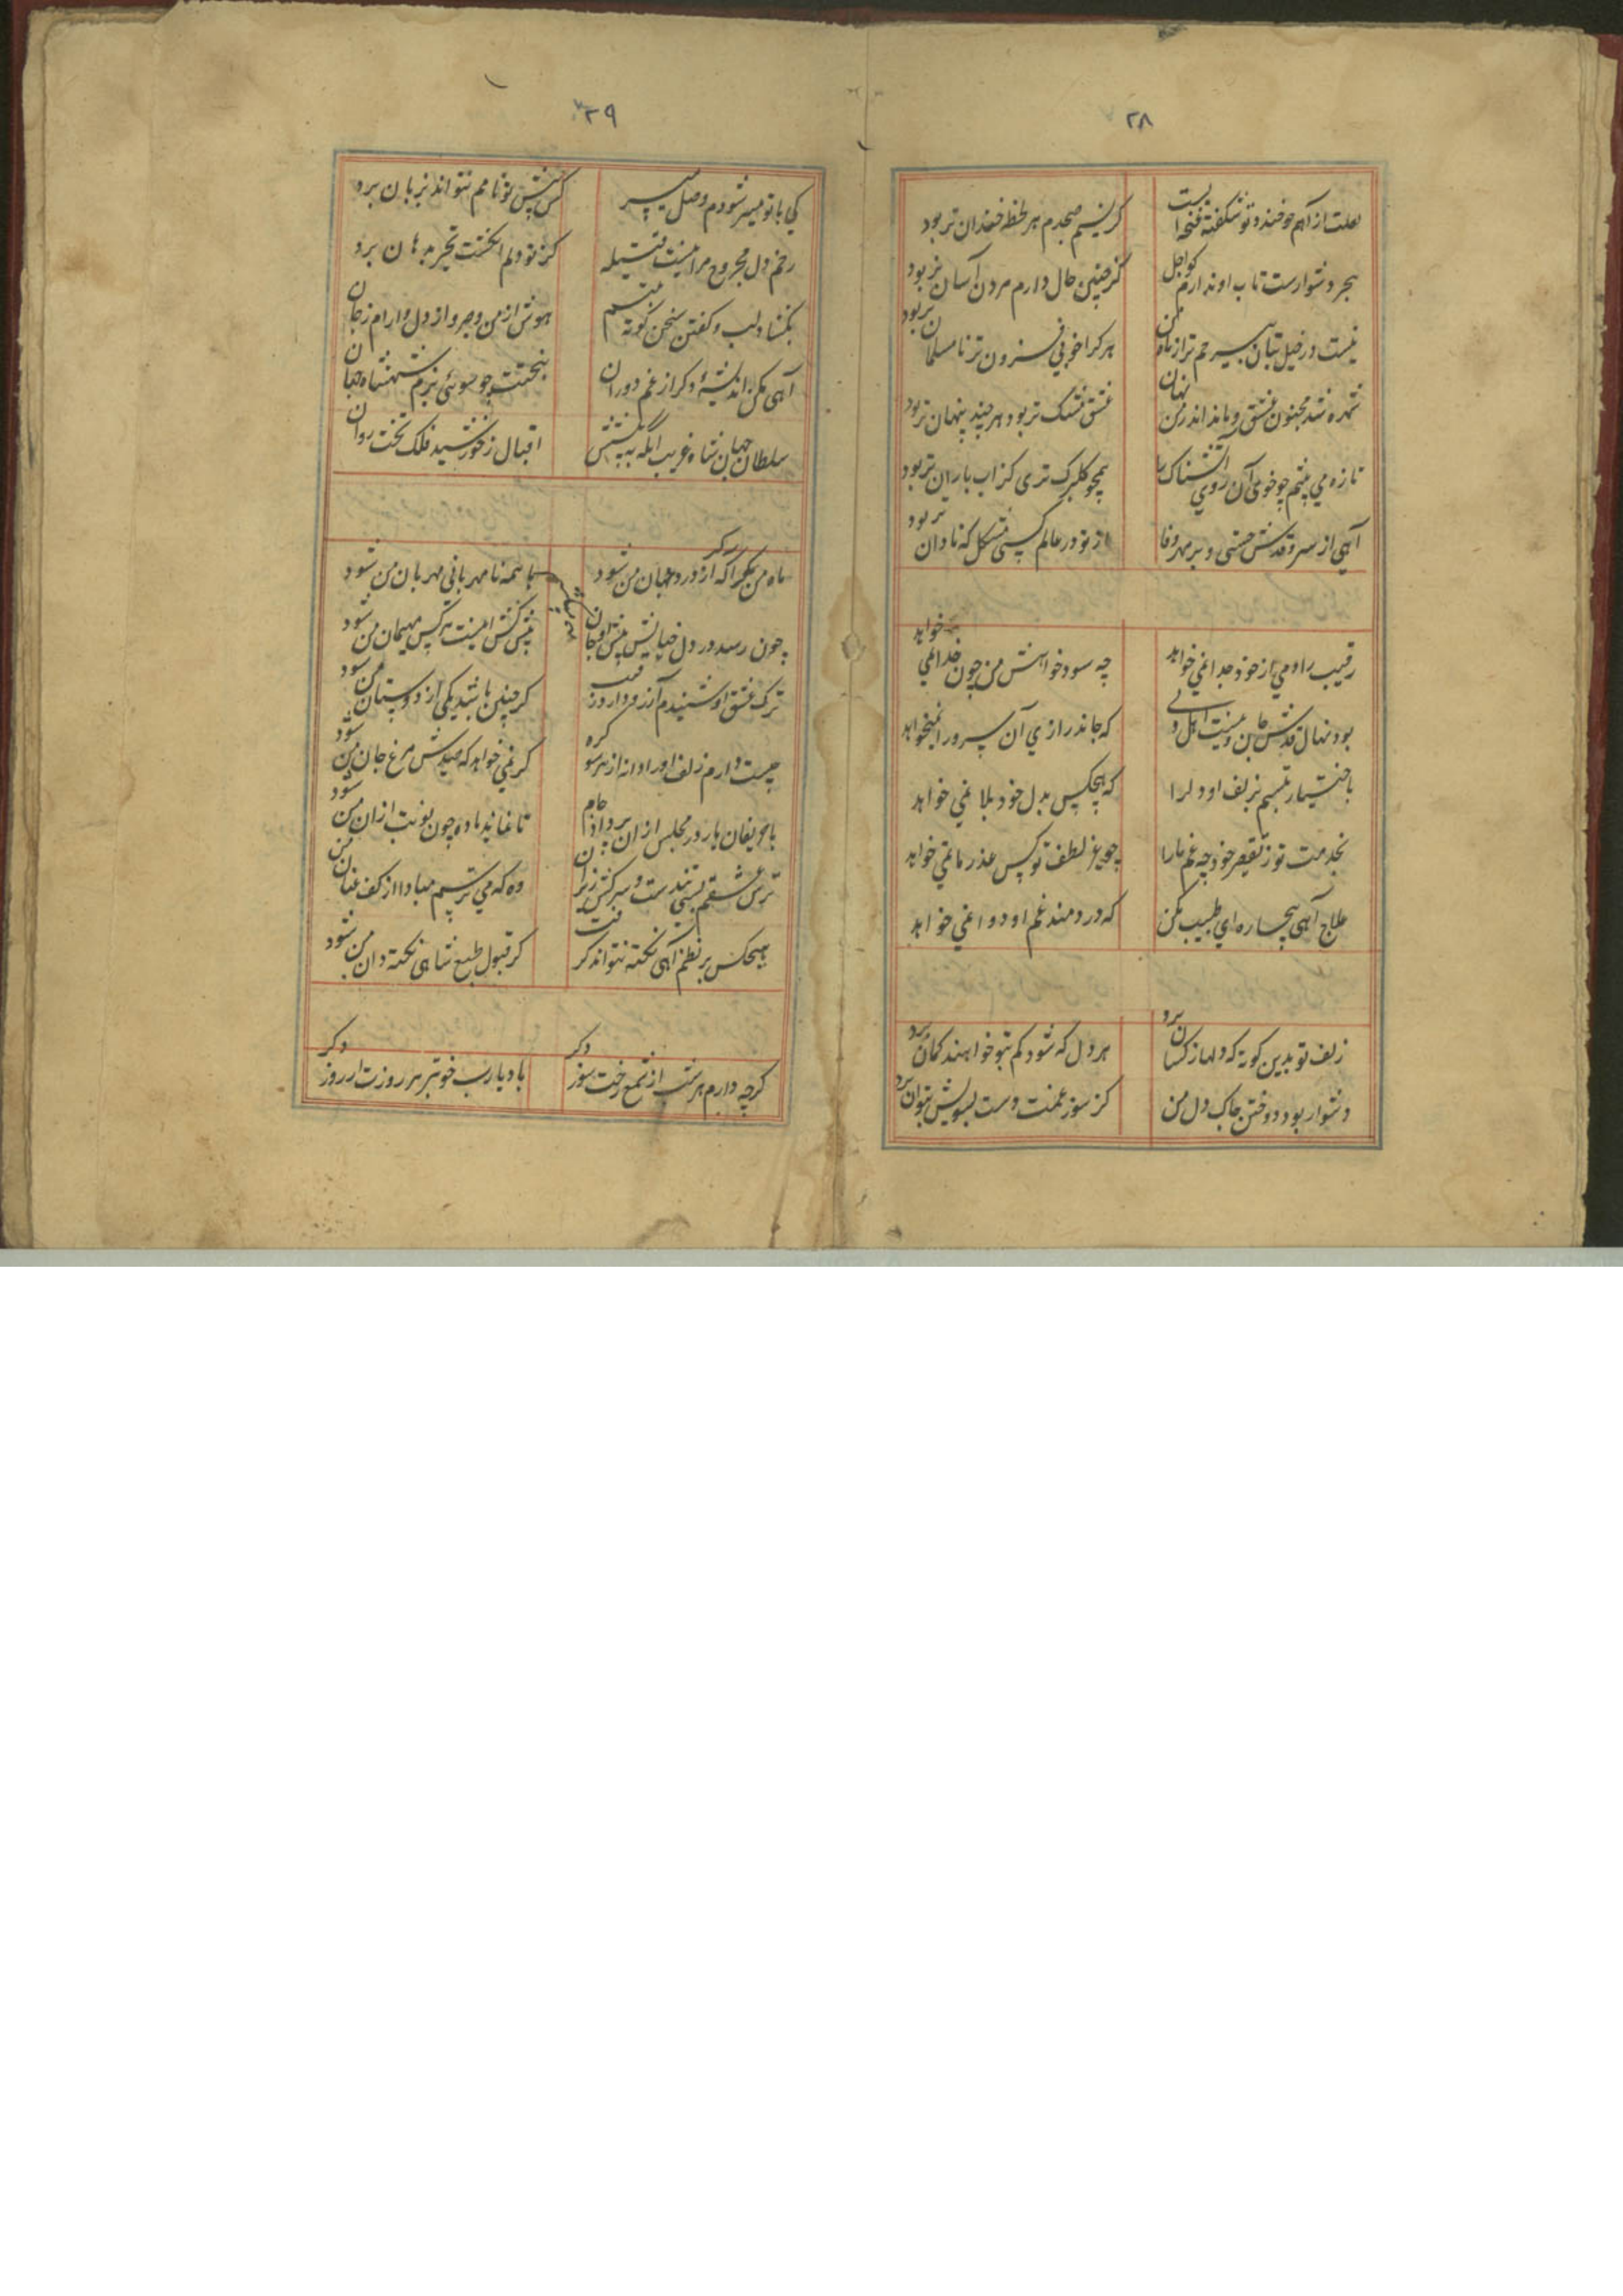 ۲۸
لعلت از آهم چو خندد تو شکفته غنچه ایست
کز نسیم صبحدم هر لحظه خندان تر بود
هجر دشوارست تاب او ندارم کو اجل
کز چنین حال دارم مردن آسان تر بود
نیست در خیل بتان بیرحم تر از ماه من
هر کرا خوبی فزون تر نامسلمان تر بود
شهره شد مجنون بعشق و ماند اندر من نهان
عشق مشک تر بود هر چند پنهان تر بود
تازه می بینم چو خوی آن روی آتشناک را
همچو کلبرک تری کز آب باران تر بود
آهی از سرو قدش جستی و بر مهر و وفا
از تو در عالم کسی مشکل که نادان تر بود
رقیب را دمی از خود جدا نمی خواهد
چه سود خواهش من چون خدا نمی خواهد
بود نهال قدش جان و نیست اهل دلی
که جاندرازی آن سرو را نمیخواهد
باختیار نبستم بزلف او دل را
که هیچکس بدل خود بلا نمی خواهد
بخدمت تو ز تقصیر خود چه غم ما را
چو غیر لطف تو کس عذر ما نمی خواهد
علاج آهی بیچاره ای طبیب مکن
که دردمند غم او دوا نمی خواهد
زلف تو بدین کونه که دلها ز کسان برد
هر دل که شود کم بتو خواهند کمان برد
دشوار بود دوختن چاک دل من
کز سوز غمت دست بسویش نتوان برد
۲۹
کی با تو میسر شودم وصل
کس پیش تو نامم نتواند بزبان برد
زخم دل مجروح مرا نیست فتیله
کز تو دلم انکشت تحیر بدهان برد
بکشاد لب و کفتن سخن کوته
هوش از من و صبر از دل و آرام ز جان
آهی مکن اندیشهٔ دکر از غم دوران
بختت چو سوی بزم شهنشاه جهان
سلطان جهان شاه غریب آنکه به پیشش
اقبال ز خورشید فلک تخت روان
ماه من بکذار که از درد جهان من شود
با همه نامهربانی مهربان من شود
چون رسد در دل خیالش پیش او جان
پیش کش اینست هر کس میهمان من شود
ترک عشق او شنیدم آرزو دارد رقیب
کر چنین باشد یکی از دوستان من شود
چیست دارم زلف او را دانه از هر سو کره
کر نمی خواهد که صیدش مرغ جان من شود
با حریفان یار در مجلس از آن پر داد جام
تا نماند باده چون نوبت از آن من شود
ترس عشقم بس تندست و سرکش زیر ران
وه که می ترسم مبادا از کف عنان من
هیچکس بر نظم آهی نکته نتواند کرفت
کر قبول طبع شاهی نکته دان من شود
کرچه دارم هر شب از شمع رخت سوز دکر
باد یا رب خوبتر هر روزت از روز دکر